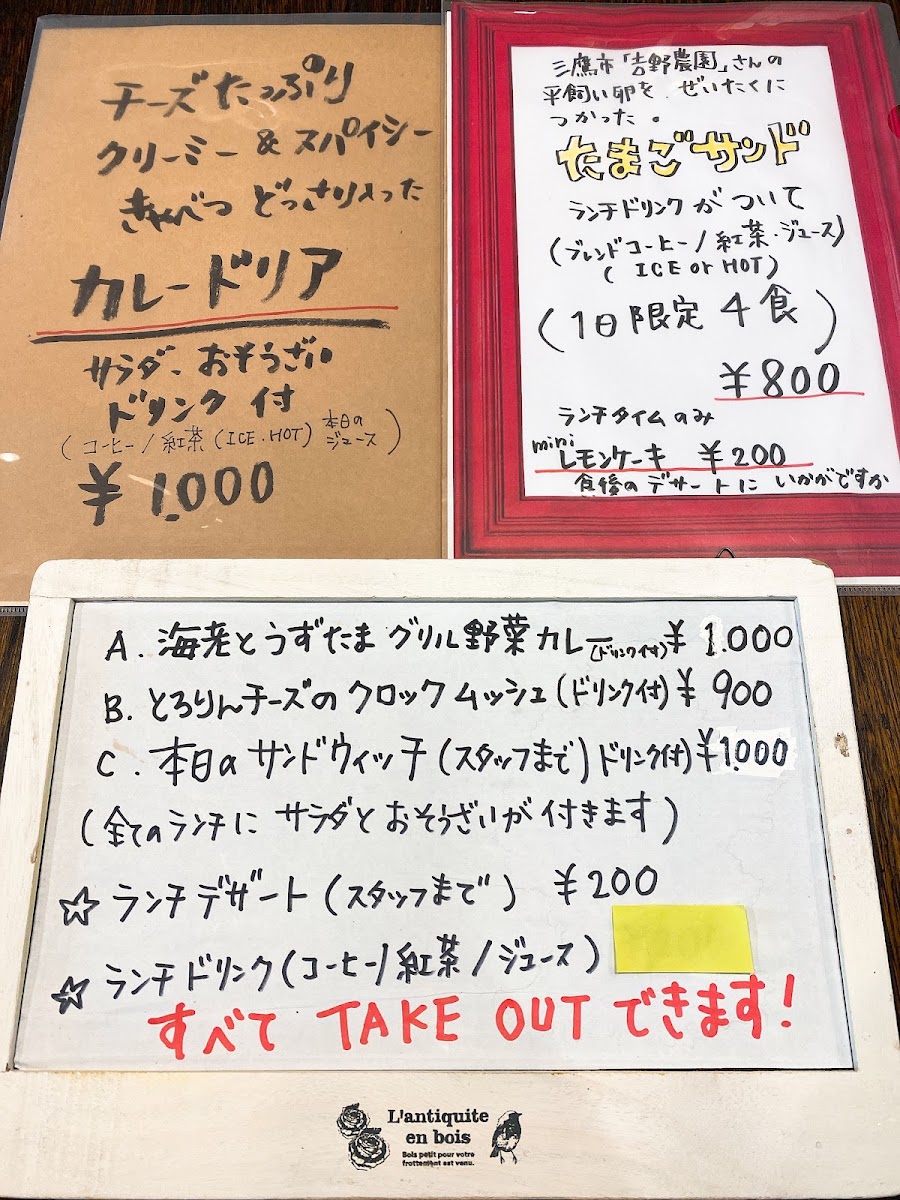 チーズたっぷり
クリーミー & スパイシー
きゃべつ どっさり入った
カレードリア
サラダ、おそうざい
ドリンク付
(コーヒー/紅茶(ICE・HOT)本日のジュース)
¥1,000
三鷹市「吉野農園」さんの
平飼い卵を、ぜいたくに
つかった。
たまごサンド
ランチドリンクがついて
(ブレンドコーヒー/紅茶・ジュース)
(ICE or HOT)
(1日限定4食)
¥800
ランチタイムのみ
mini レモンケーキ ¥200
食後のデザートにいかがですか
A. 海老とうずたまグリル野菜カレー(ドリンク付)¥1.000
B. とろりんチーズのクロックムッシュ(ドリンク付)¥900
C. 本日のサンドウィッチ(スタッフまで)ドリンク付)¥1.000
(全てのランチにサラダとおそうざいが付きます)
☆ ランチデザート(スタッフまで) ¥200
☆ ランチドリンク(コーヒー/紅茶/ジュース)
すべて TAKE OUT できます!
L'antiquite
en bois
Bois petit pour votre
frottement est venu.